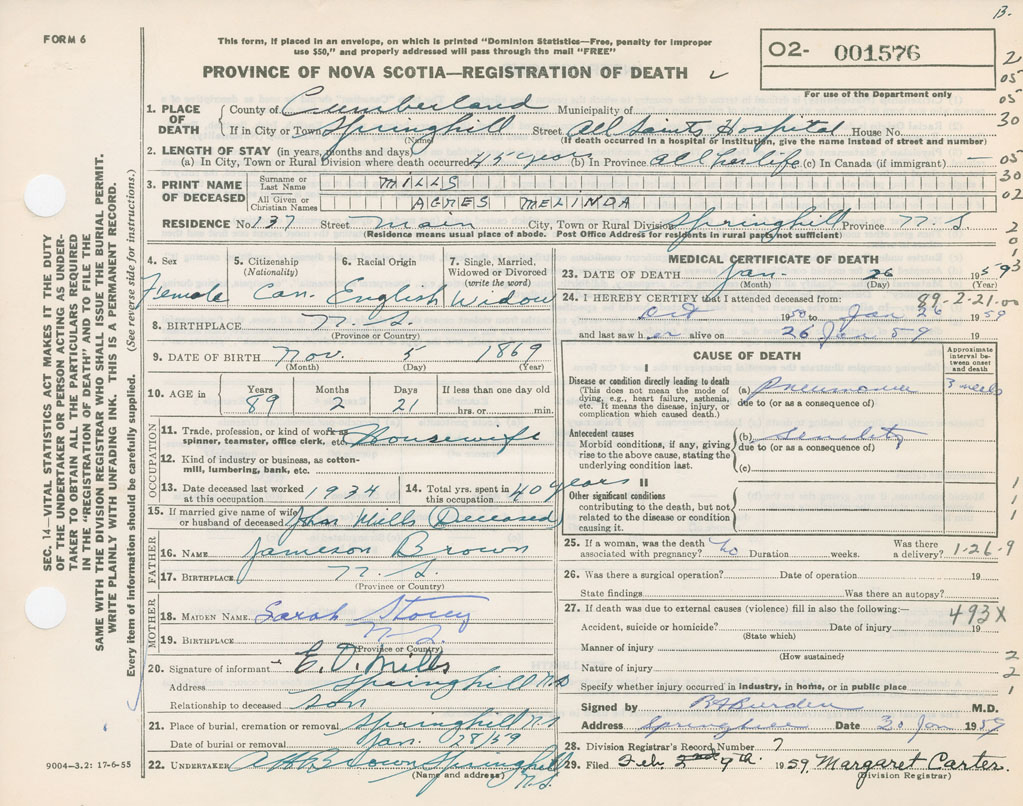 B.
FORM 6
This form, if placed in an envelope, on which is printed "Dominion Statistics—Free, penalty for improper
use $50," and properly addressed will pass through the mail "FREE"
PROVINCE OF NOVA SCOTIA—REGISTRATION OF DEATH
O2- 001576
For use of the Department only
2
05
05
30
05
30
02
SEC. 14—VITAL STATISTICS ACT MAKES IT THE DUTY
OF THE UNDERTAKER OR PERSON ACTING AS UNDER-
TAKER TO OBTAIN ALL THE PARTICULARS REQUIRED
IN THE "REGISTRATION OF DEATH" AND TO FILE THE
SAME WITH THE DIVISION REGISTRAR WHO SHALL ISSUE THE BURIAL PERMIT.
WRITE PLAINLY WITH UNFADING INK. THIS IS A PERMANENT RECORD.
Every item of information should be carefully supplied. (See reverse side for instructions.)
1. PLACE OF DEATH County of Cumberland Municipality of
If in City or Town Springhill Street All Saints Hospital House No.
(Name) (If death occurred in a hospital or institution, give the name instead of street and number)
2. LENGTH OF STAY (in years, months and days)
(a) In City, Town or Rural Division where death occurred 45 years (b) In Province all her life (c) In Canada (if immigrant) —
3. PRINT NAME OF DECEASED
Surname or Last Name MILLS
All Given or Christian Names AGNES MELINDA
RESIDENCE No. 137 Street Main City, Town or Rural Division Springhill Province N.S.
(Residence means usual place of abode. Post Office Address for residents in rural parts not sufficient)
4. Sex Female
5. Citizenship (Nationality) Can.
6. Racial Origin English
7. Single, Married, Widowed or Divorced (write the word) Widow
8. BIRTHPLACE N.S.
(Province or Country)
9. DATE OF BIRTH Nov. 5 1869
(Month) (Day) (Year)
10. AGE in Years 89 Months 2 Days 21 If less than one day old hrs. or min.
OCCUPATION
11. Trade, profession, or kind of work as spinner, teamster, office clerk, etc. Housewife
12. Kind of industry or business, as cotton-mill, lumbering, bank, etc.
13. Date deceased last worked at this occupation 1934
14. Total yrs. spent in this occupation 40 years
15. If married give name of wife or husband of deceased John Mills (Deceased)
FATHER
16. NAME Jameson Brown
17. BIRTHPLACE N.S.
(Province or Country)
MOTHER
18. MAIDEN NAME Sarah Storey
19. BIRTHPLACE N.S.
(Province or Country)
20. Signature of informant E. O. Mills
Address Springhill N.S
Relationship to deceased Son
21. Place of burial, cremation or removal Springhill N.S
Date of burial or removal Jan. 28/59
22. UNDERTAKER Brown Springhill N.S.
(Name and address)
9004—3.2: 17-6-55
MEDICAL CERTIFICATE OF DEATH
23. DATE OF DEATH Jan. 26 1959
(Month) (Day) (Year)
89-2-21-00
24. I HEREBY CERTIFY that I attended deceased from:
Oct 1950 to Jan 26 1959
and last saw her alive on 26 Jan 59 19
CAUSE OF DEATH
Approximate interval between onset and death
I
Disease or condition directly leading to death
(This does not mean the mode of dying, e.g., heart failure, asthenia, etc. It means the disease, injury, or complication which caused death.)
(a) Pneumonia 3 weeks
due to (or as a consequence of)
Antecedent causes
Morbid conditions, if any, giving rise to the above cause, stating the underlying condition last.
(b) Senility
due to (or as a consequence of)
(c)
II
Other significant conditions
contributing to the death, but not related to the disease or condition causing it.
25. If a woman, was the death associated with pregnancy? no Duration weeks. Was there a delivery?
1-26-9
26. Was there a surgical operation? Date of operation 19
State findings Was there an autopsy?
27. If death was due to external causes (violence) fill in also the following:—
493X
Accident, suicide or homicide? Date of injury 19
(State which)
Manner of injury
(How sustained)
Nature of injury
Specify whether injury occurred in industry, in home, or in public place
Signed by Burden M.D.
Address Springhill Date 30 Jan 1959
28. Division Registrar's Record Number 7
29. Filed Feb. 9th. 1959 Margaret Carter.
(Division Registrar)